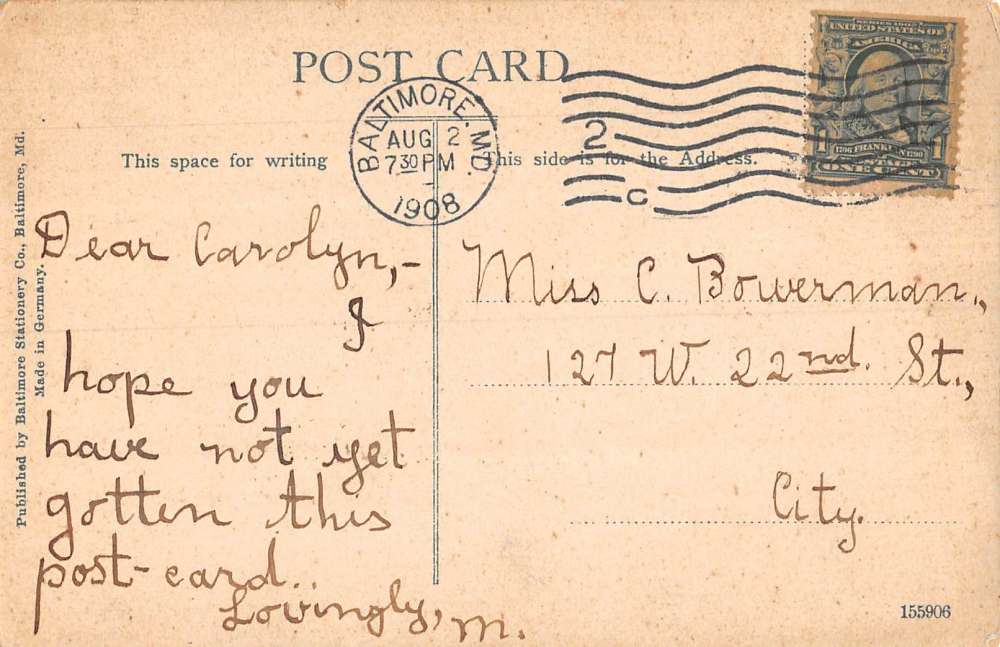 POST CARD
BALTIMORE, MD.
AUG 2
7 30 PM
1908
2
C
SERIES 1902
UNITED STATES OF
AMERICA
1 1706 FRANKLIN 1790 1
ONE CENT
This space for writing
This side is for the Address.
Published by Baltimore Stationery Co., Baltimore, Md.
Made in Germany.
Dear Carolyn,-
I
hope you
have not yet
gotten this
post-card..
Lovingly, M.
Miss C. Bowerman.,
127 W. 22nd. St.,
City.
155906